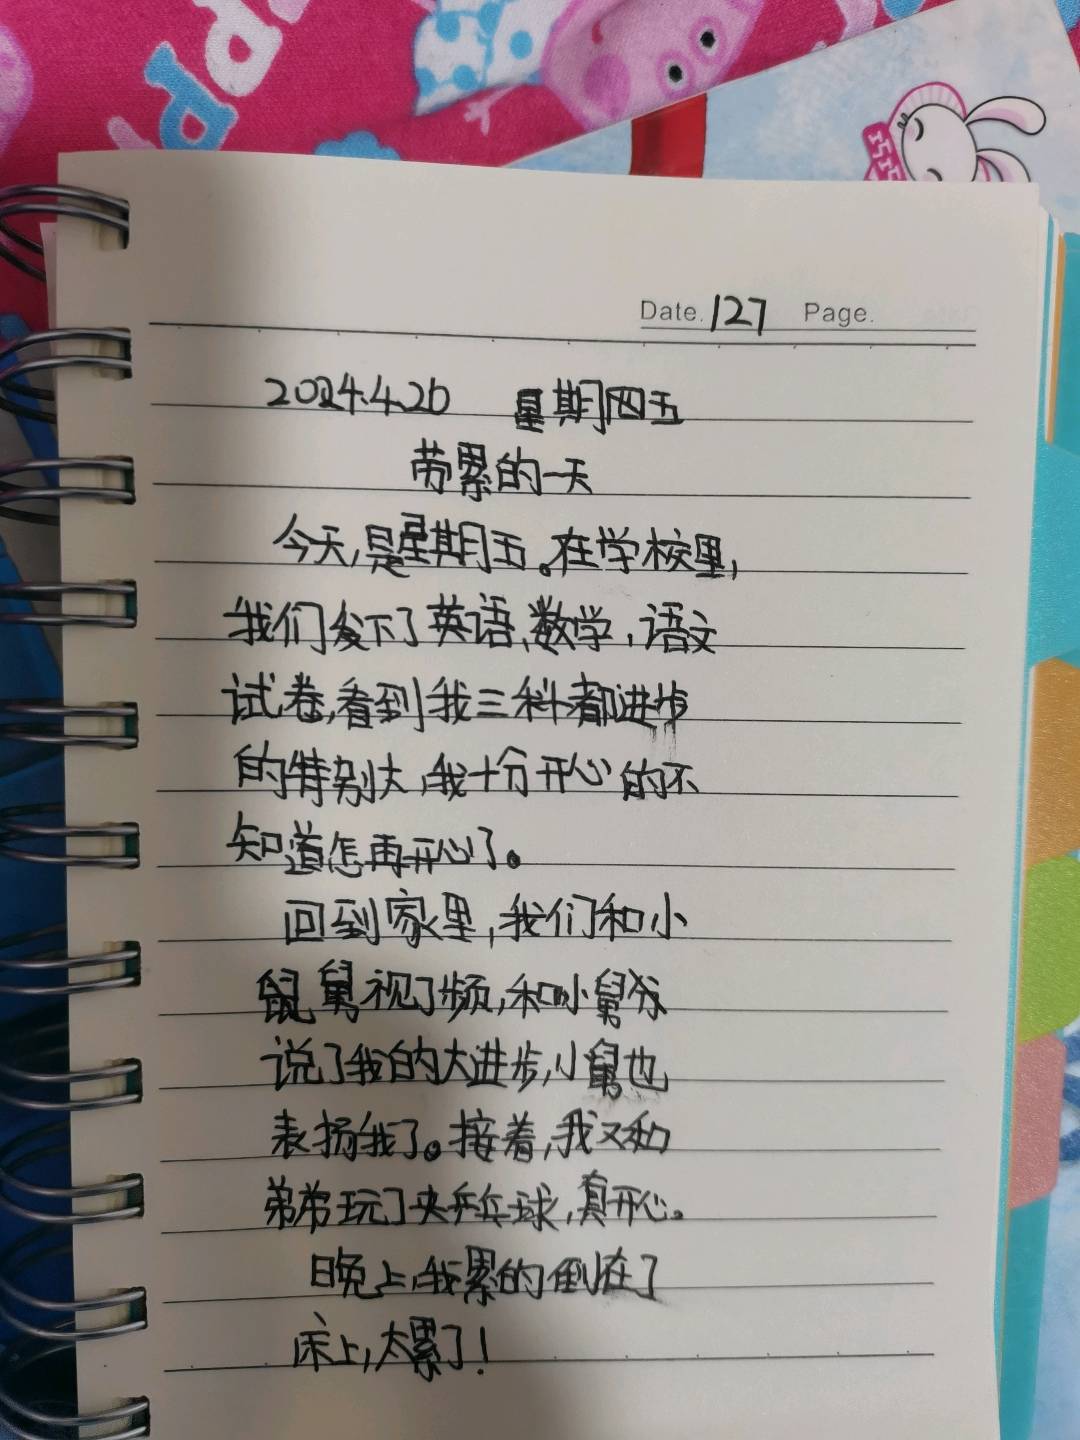 Date. 127 Page.
2024.4.26 星期四五
劳累的一天
今天,是星期五。在学校里,
我们发下了英语、数学,语文
试卷,看到我三科都进步
的特别大,我十分开心的不
知道怎再开心了。
回到家里,我们和小
鼠舅视了频,和小舅分
说了我的大进步,小舅也
表扬我了。接着,我又和
弟弟玩了夹乒乓球,真开心。
晚上,我累的倒在了
床上,太累了!